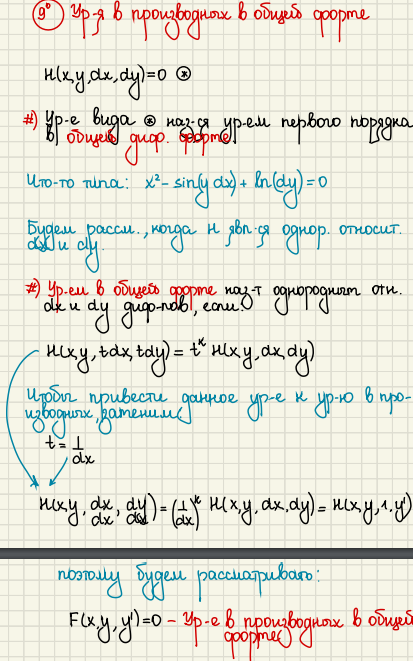 9⁰ Ур-я в производных в общей форме
H(x,y,dx,dy)=0 ⊛
#) Ур-е вида ⊛ наз-ся ур-ем первого порядка
в общей диф. форме.
Что-то типа: x² - sin(y dx) + ln(dy) = 0
Будем рассм., когда H явл-ся однор. относит.
dx и dy.
#) Ур-ем в общей форме наз-т однородным отн.
dx и dy диф-лов, если:
H(x,y, tdx, tdy) = tᵏ H(x,y,dx,dy)
Чтобы привести данное ур-е к ур-ю в про-
изводных, заменим
t = 1/dx
H(x,y, dx/dx, dy/dx) = (1/dx)ᵏ H(x,y,dx,dy) = H(x,y,1,y')
поэтому будем рассматривать:
F(x,y,y')=0 - Ур-е в производных в общей
форме